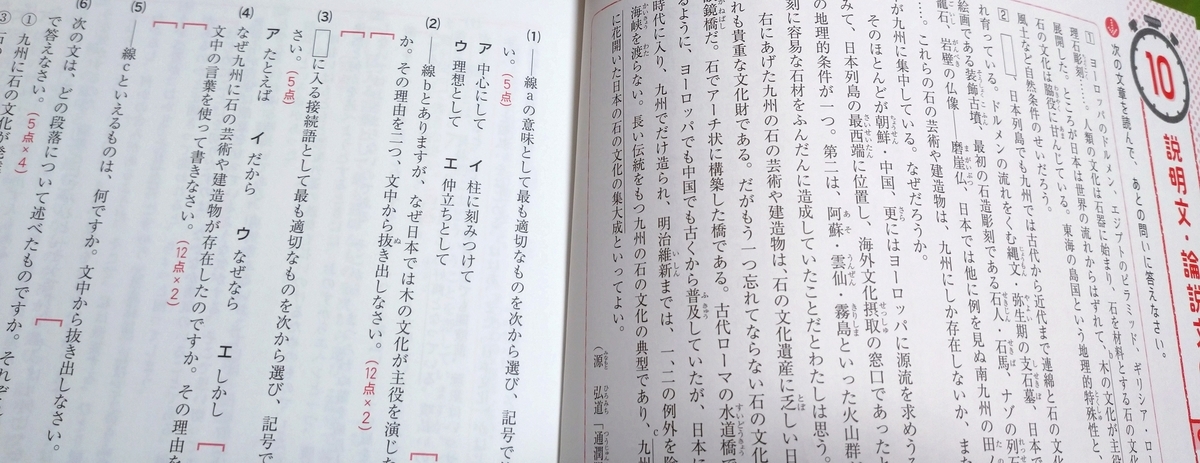 10
説明文・論説文
次の文章を読んで、あとの問いに答えなさい。
1 ヨーロッパのドルメン、エジプトのピラミッド、ギリシア・ロー
理石彫刻……。人類の文化は石器に始まり、石を材料とする石の文化
展開した。ところが日本は世界の流れからはずれて、木の文化が主役
石の文化は脇役に甘んじている。東海の島国という地理的特殊性と、
風土など自然条件のせいだろう。
2 日本列島でも九州では古代から近代まで連綿と石の文
れ育っている。ドルメンの流れをくむ縄文・弥生期の支石墓、日本で
絵画である装飾古墳、最初の石造彫刻である石人・石馬、ナゾの列石
籠石、岩壁の仏像――磨崖仏、日本では他に例を見ぬ南九州の田ノ
……。これらの石の芸術や建造物は、九州にしか存在しないか、また
が九州に集中している。なぜだろうか。
そのほとんどが朝鮮・中国、更にはヨーロッパに源流を求めう
みて、日本列島の最西端に位置し、海外文化摂取の窓口であったと
の地理的条件が一つ。第二は、阿蘇・雲仙・霧島といった火山群が
刻に容易な石材をふんだんに造成していたことだとわたしは思う。
右にあげた九州の石の芸術や建造物は、石の文化遺産に乏しい日
れも貴重な文化財である。だがもう一つ忘れてならない石の文化
眼鏡橋だ。石でアーチ状に構築した橋である。古代ローマの水道橋で
るように、ヨーロッパでも中国でも古くから普及していたが、日本に
時代に入り、九州でだけ造られ、明治維新までは、一、二の例外を除
海峡を渡らない。長い伝統をもつ九州の石の文化の典型であり、九州
に花開いた日本の石の文化の集大成といってよい。
(源 弘道「通潤
(1) ――線aの意味として最も適切なものを次から選び、記号で
い。(5点)
ア 中心にして イ 柱に刻みつけて
ウ 理想として エ 仲立ちとして
(2) ――線bとありますが、なぜ日本では木の文化が主役を演じた
か。その理由を二つ、文中から抜き出しなさい。(12点×2)
(3) □に入る接続語として最も適切なものを次から選び、記号で
さい。(5点)
ア たとえば イ だから ウ なぜなら エ しかし
(4) なぜ九州に石の芸術や建造物が存在したのですか。その理由を
文中の言葉を使って書きなさい。(12点×2)
(5) ――線cといえるものは、何ですか。文中から抜き出しなさい。
(6) 次の文は、どの段落について述べたものですか。それぞれ
で答えなさい。(5点×4)
① 九州に石の文化が発